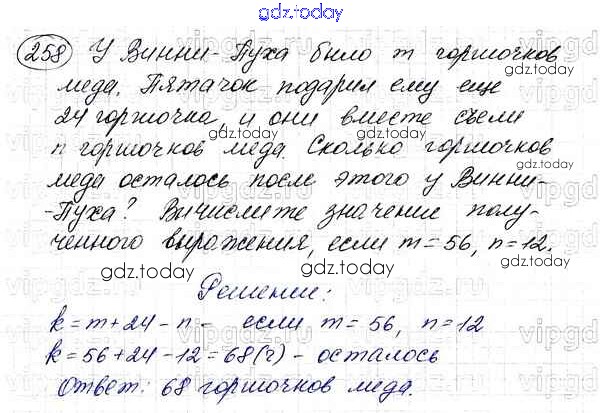 gdz.today
258 У Винни-Пуха было m горшочков
меда. Пятачок подарил ему еще
24 горшочка, и они вместе съели
n горшочков меда. Сколько горшочков
меда осталось после этого у Винни-
-Пуха? Вычислите значение полу-
ченного выражения, если m = 56, n = 12.
gdz.today
Решение:
k = m + 24 - n - если m = 56, n = 12
k = 56 + 24 - 12 = 68 (г) - осталось
Ответ: 68 горшочков меда.
gdz.today